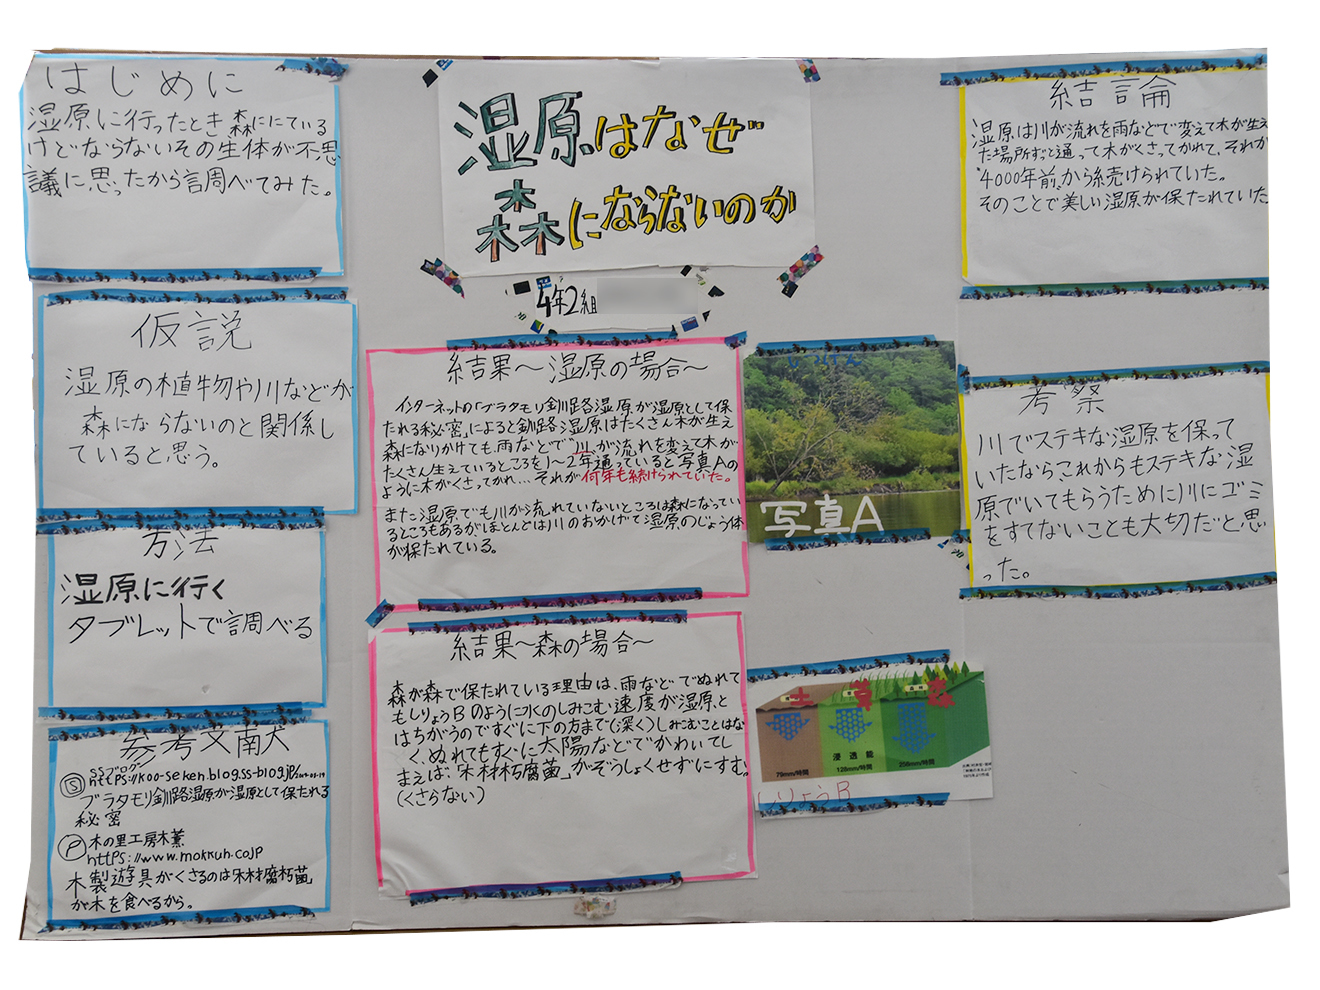 はじめに
湿原に行ったとき森ににている
けどならないその生体が不思
議に思ったから調べてみた。
仮説
湿原の植物や川などが
森にならないのと関係し
ていると思う。
方法
湿原に行く
タブレットで調べる
参考文南犬
S
https://koo-seken.blog.ss-blog.jp/
ブラタモリ釧路湿原が湿原として保たれる
秘密
P
木の里工房木薫
https://www.mokkun.co.jp
木製遊具がくさるのは「木材腐朽菌」
が木を食べるから。
湿原はなぜ
森にならないのか
4年2組
結果～湿原の場合～
インターネットの「ブラタモリ釧路湿原が湿原として保
たれる秘密」によると釧路湿原はたくさん木が生え
森になりかけても、雨などで"川"が流れを変えて木が
たくさん生えているところを1～2年通っていると写真Aの
ように木がくさってかれ…それが何年も続けられていた。
また湿原でも川が流れていないところは森になってい
るところもあるが、ほとんどは川のおかげで湿原のじょう体
が保たれている。
結果～森の場合～
森が森で保たれている理由は、雨などでぬれて
もしりょうBのように水のしみこむ速度が湿原と
はちがうのですぐに下の方まで(深く)しみこむことはな
く、ぬれてもすぐに太陽などでかわいてし
まえば「木材朽腐菌」がぞうしょくせずにすむ。
(くさらない)
しつげん
写真A
土 草 森
浸透能
79mm/時間 128mm/時間 258mm/時間
しりょうB
結論
湿原は川が流れを雨などで変えて木が生え
た場所ずっと通って木がくさってかれて、それが
"4000年前"から続けられていた。
そのことで美しい湿原が保たれていた
考察
川でステキな湿原を保って
いたなら、これからもステキな湿
原でいてもらうために川にゴミ
をすてないことも大切だと思
った。